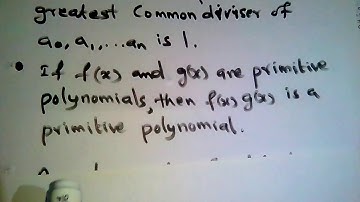 greatest Common diviser of
a₀, a₁, ... aₙ is 1.
• If f(x) and g(x) are primitive
polynomials, then f(x) g(x) is a
primitive polynomial.